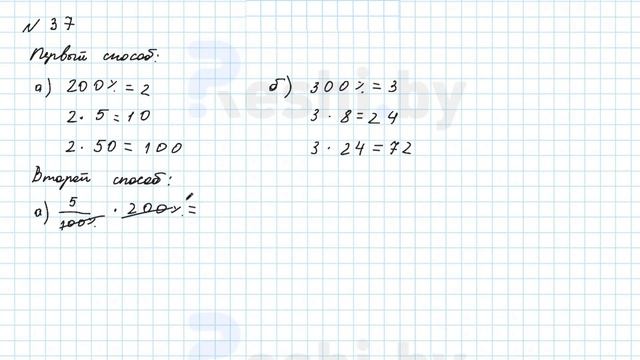 № 37
Первый способ:
а) 200% = 2
2 · 5 = 10
2 · 50 = 100
б) 300% = 3
3 · 8 = 24
3 · 24 = 72
Второй способ:
а) 5/100% · 200% =
Reshi.by
Reshi.by